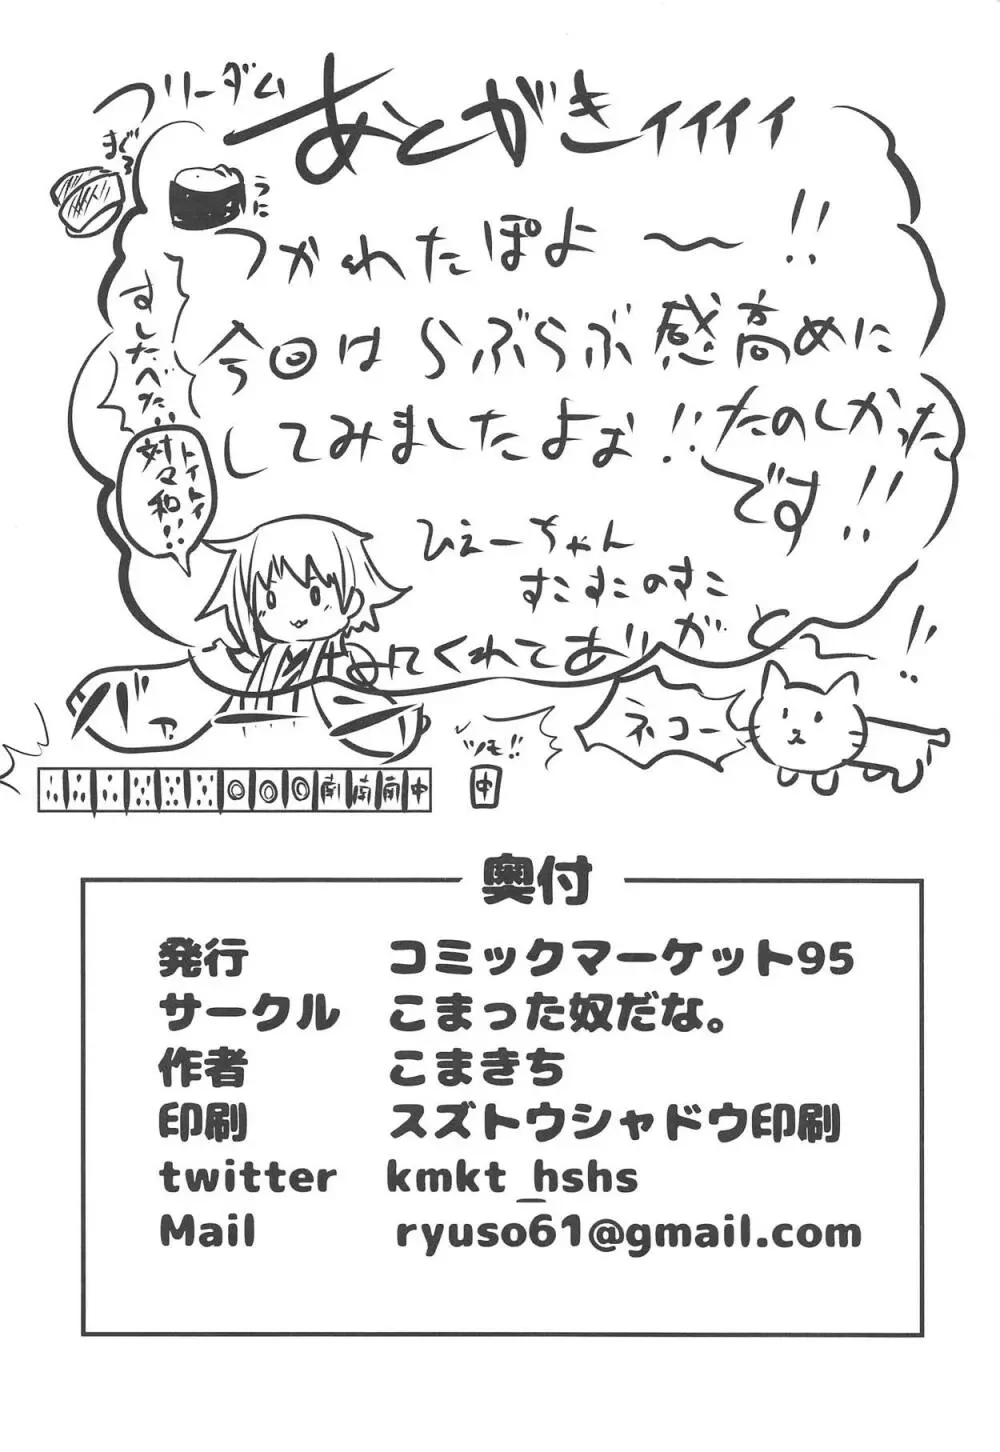 フリーダム
あとがきィィィィ
まぐろ
うに
つかれたぽよ〜!!
今回はらぶらぶ感高めに
してみましたよぉ!!たのしかった
です!!
すしたべた…
トイトイ
対々和!!
ひえーちゃん
すこすこのすこ
みてくれてありがと〜!!
ネコー
ツモ!!
南南南中
中
奥付
発行 コミックマーケット95
サークル こまった奴だな。
作者 こまきち
印刷 スズトウシャドウ印刷
twitter kmkt_hshs
Mail ryuso61@gmail.com